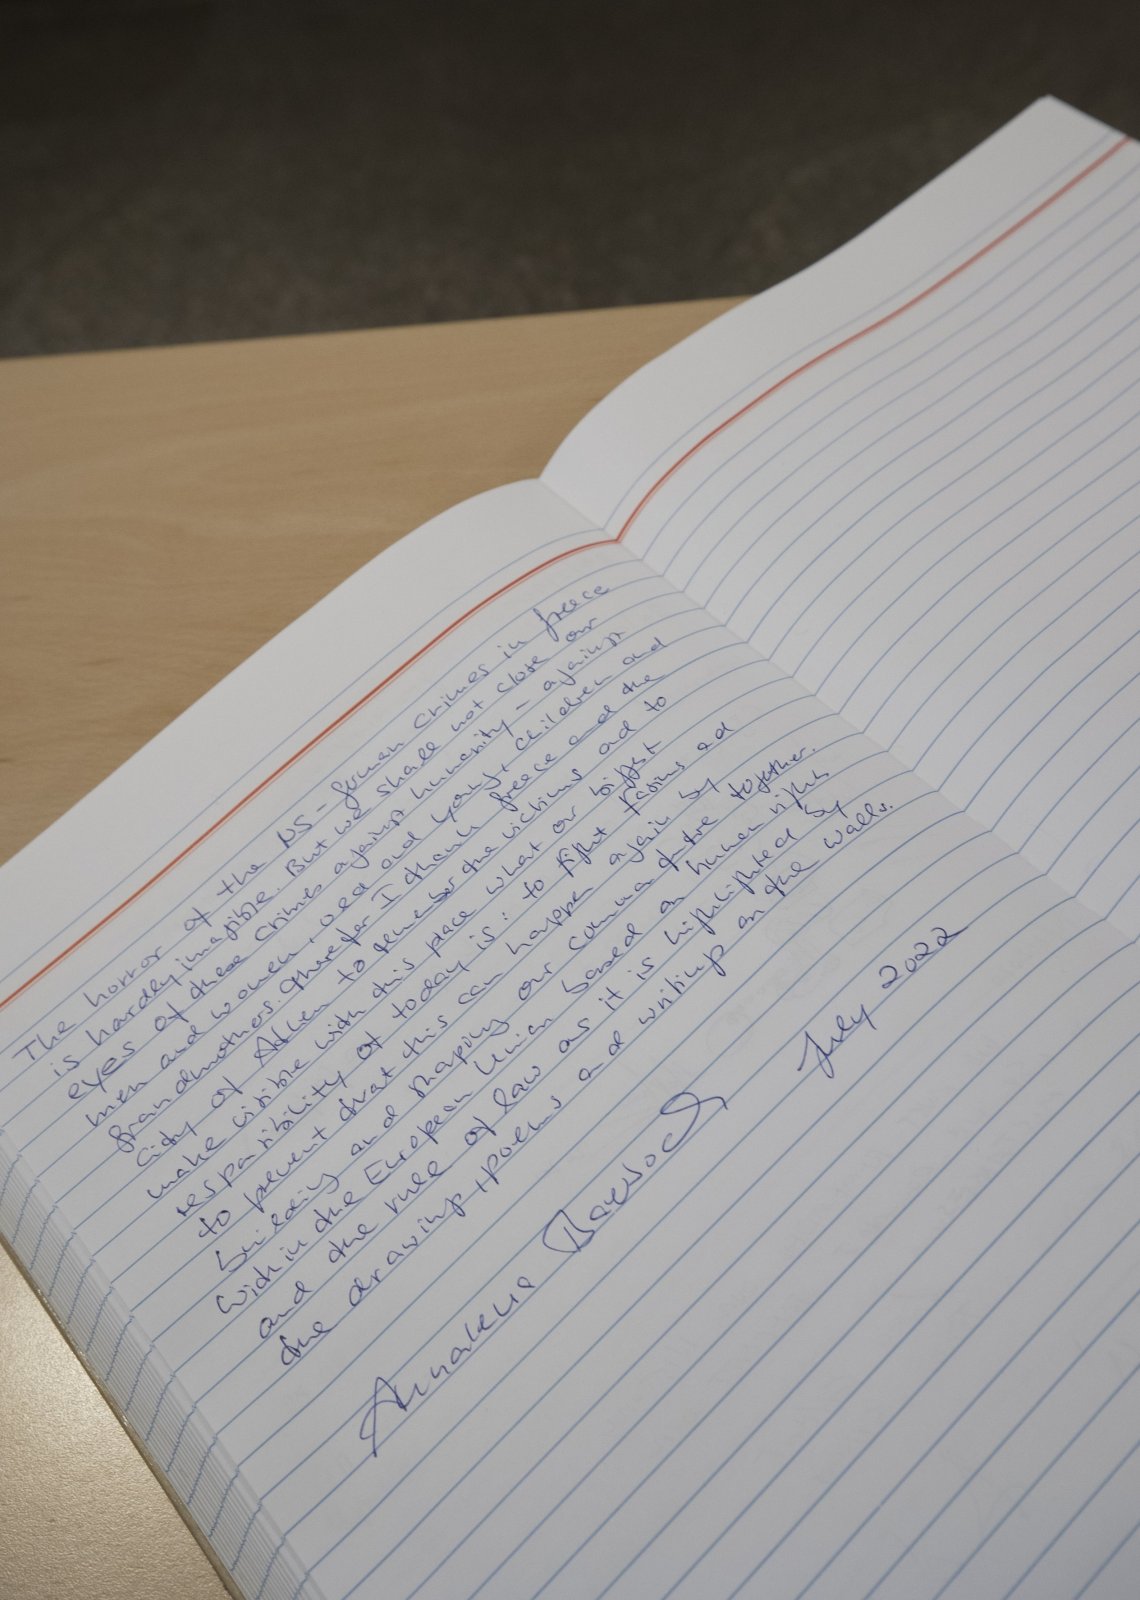 The horror of the NS-German Crimes in Greece
is hardly imagible. But we shall not close our
eyes of these Crimes against humanity - against
men and women, old and young, children and
grandmothers. Therefor I thank Greece and the
City of Athen to remember the victims and to
make visible with this place what our biggest
responsibility of today is: to fight facism ad
to prevent that this can happen again by
building and shaping our common future together.
Within the European Union based on human rights
and the rule of law as it is highlighted by
the drawings, poems and writings on the walls.
Annalena Baerbock
July 2022